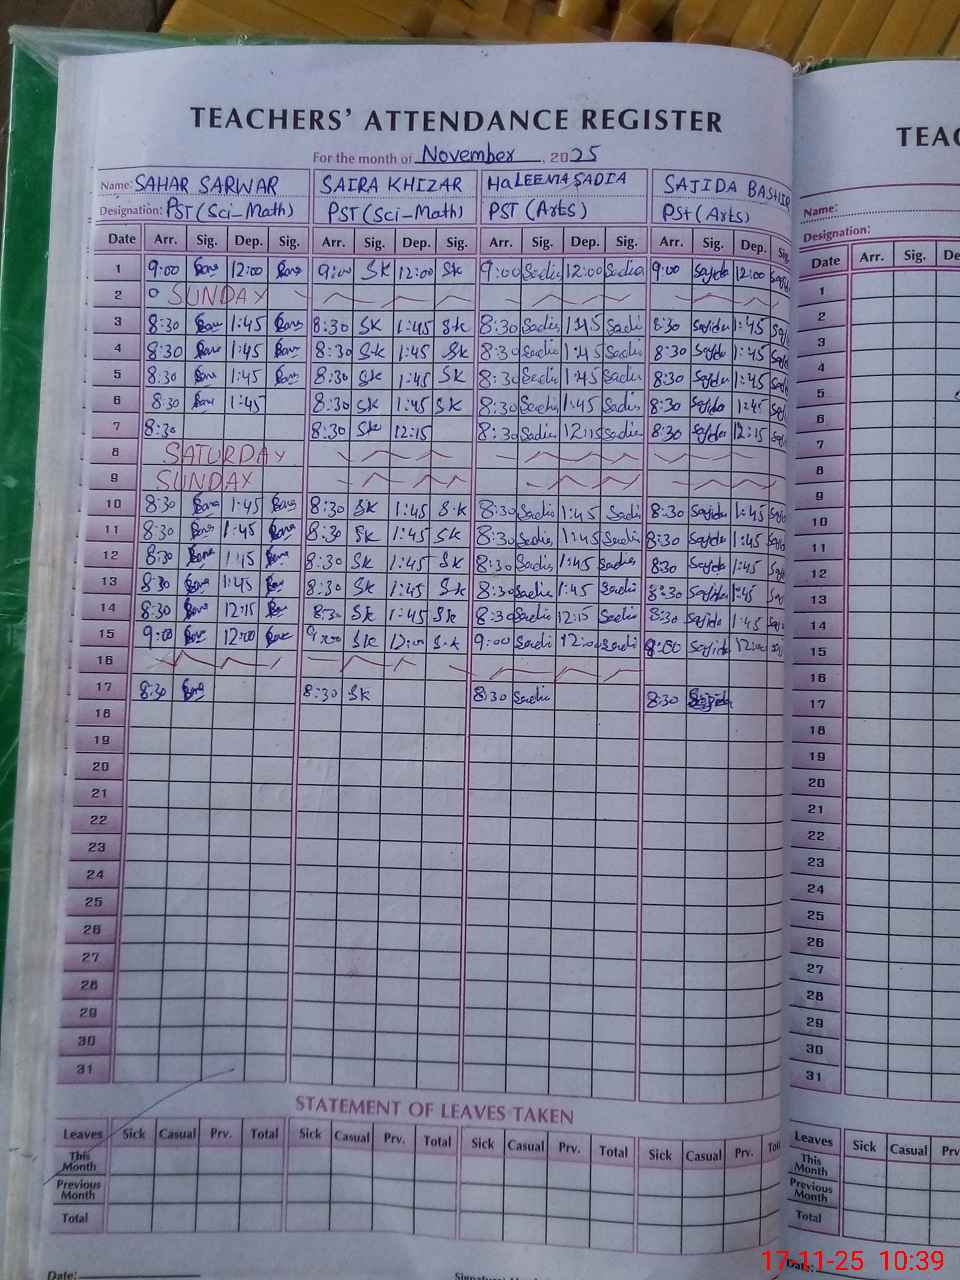 TEACHERS' ATTENDANCE REGISTER
For the month of November, 2025
TEAC
Name: SAHAR SARWAR SAIRA KHIZAR HaLEEMA SADIA SAJIDA BASHIR
Designation: PST (Sci-Math) PST (Sci-Math) PST (Arts) PSt (Arts)
Name:
Designation:
Date Arr. Sig. Dep. Sig. Arr. Sig. Dep. Sig. Arr. Sig. Dep. Sig. Arr. Sig. Dep. Sig.
Date Arr. Sig. De
1 9:00 12:00 9:00 SK 12:00 SK 9:00 Sadia 12:00 Sadia 9:00 Sajida 12:00 1
2 SUNDAY 2
3 8:30 1:45 8:30 SK 1:45 SK 8:30 Sadia 1:45 Sadi 8:30 Sajida 1:45 3
4 8:30 1:45 8:30 SK 1:45 SK 8:30 Sadia 1:45 Sadia 8:30 Sajida 1:45 4
5 8:30 1:45 8:30 SK 1:45 SK 8:30 Sadia 1:45 Sadia 8:30 Sajida 1:45 5
6 8:30 1:45 8:30 SK 1:45 SK 8:30 Sadia 1:45 Sadia 8:30 Sajida 1:45 6
7 8:30 8:30 SK 12:15 8:30 Sadia 12:15 Sadia 8:30 Sajida 12:15 7
8 SATURDAY 8
9 SUNDAY 9
10 8:30 1:45 8:30 SK 1:45 S.K 8:30 Sadia 1:45 Sadi 8:30 Sajida 1:45 10
11 8:30 1:45 8:30 SK 1:45 SK 8:30 Sadia 1:45 Sadia 8:30 Sajida 1:45 11
12 8:30 1:45 8:30 SK 1:45 SK 8:30 Sadia 1:45 Sadia 8:30 Sajida 1:45 12
13 8:30 1:45 8:30 SK 1:45 SK 8:30 Sadia 1:45 Sadia 8:30 Sajida 1:45 13
14 8:30 12:15 8:30 SK 1:45 SK 8:30 Sadia 12:15 Sadia 8:30 Sajida 1:45 14
15 9:00 12:00 SK 12:00 S.K 9:00 Sadi 12:00 Sadi Sajida 12:00 15
16 16
17 8:30 8:30 SK 8:30 Sadia 8:30 17
18 18
19 19
20 20
21 21
22 22
23 23
24 24
25 25
26 26
27 27
28 28
29 29
30 30
31 31
STATEMENT OF LEAVES TAKEN
Leaves Sick Casual Prv. Total Sick Casual Prv. Total Sick Casual Prv. Total Sick Casual Prv. Tot
Leaves Sick Casual Prv
This Month
This Month
Previous Month
Previous Month
Total
Total
Date:
Date:
17-11-25 10:39